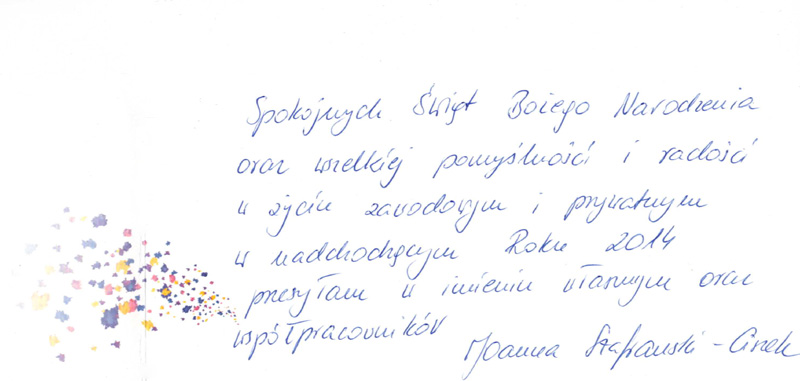 Spokojnych Świąt Bożego Narodzenia
oraz wszelkiej pomyślności i radości
w życiu zawodowym i prywatnym
w nadchodzącym Roku 2014
przesyłam w imieniu własnym oraz
współpracowników
Joanna